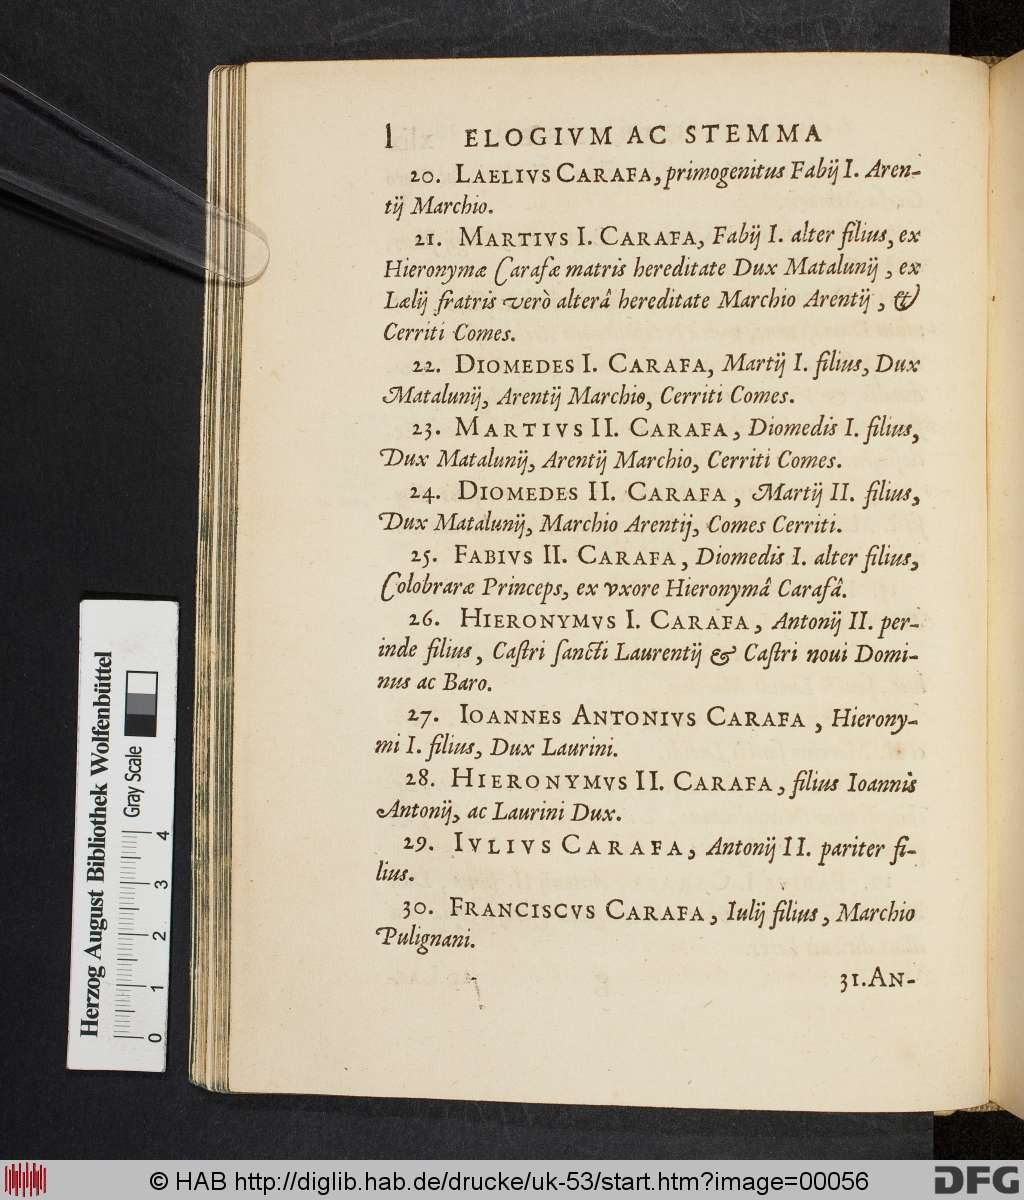 l ELOGIVM AC STEMMA
20. LAELIVS CARAFA, primogenitus Fabij I. Aren-
tij Marchio.
21. MARTIVS I. CARAFA, Fabij I. alter filius, ex
Hieronymæ Carafæ matris hereditate Dux Matalunij, ex
Lælij fratris verò alterâ hereditate Marchio Arentij, &
Cerriti Comes.
22. DIOMEDES I. CARAFA, Martij I. filius, Dux
Matalunij, Arentij Marchio, Cerriti Comes.
23. MARTIVS II. CARAFA, Diomedis I. filius,
Dux Matalunij, Arentij Marchio, Cerriti Comes.
24. DIOMEDES II. CARAFA, Martij II. filius,
Dux Matalunij, Marchio Arentij, Comes Cerriti.
25. FABIVS II. CARAFA, Diomedis I. alter filius,
Colobraræ Princeps, ex vxore Hieronymâ Carafâ.
26. HIERONYMVS I. CARAFA, Antonij II. per-
inde filius, Caſtri ſancti Laurentij & Caſtri noui Domi-
nus ac Baro.
27. IOANNES ANTONIVS CARAFA, Hierony-
mi I. filius, Dux Laurini.
28. HIERONYMVS II. CARAFA, filius Ioannis
Antonij, ac Laurini Dux.
29. IVLIVS CARAFA, Antonij II. pariter fi-
lius.
30. FRANCISCVS CARAFA, Iulij filius, Marchio
Pulignani.
31. AN-
Herzog August Bibliothek Wolfenbüttel
Gray Scale
0 1 2 3 4
© HAB http://diglib.hab.de/drucke/uk-53/start.htm?image=00056
DFG